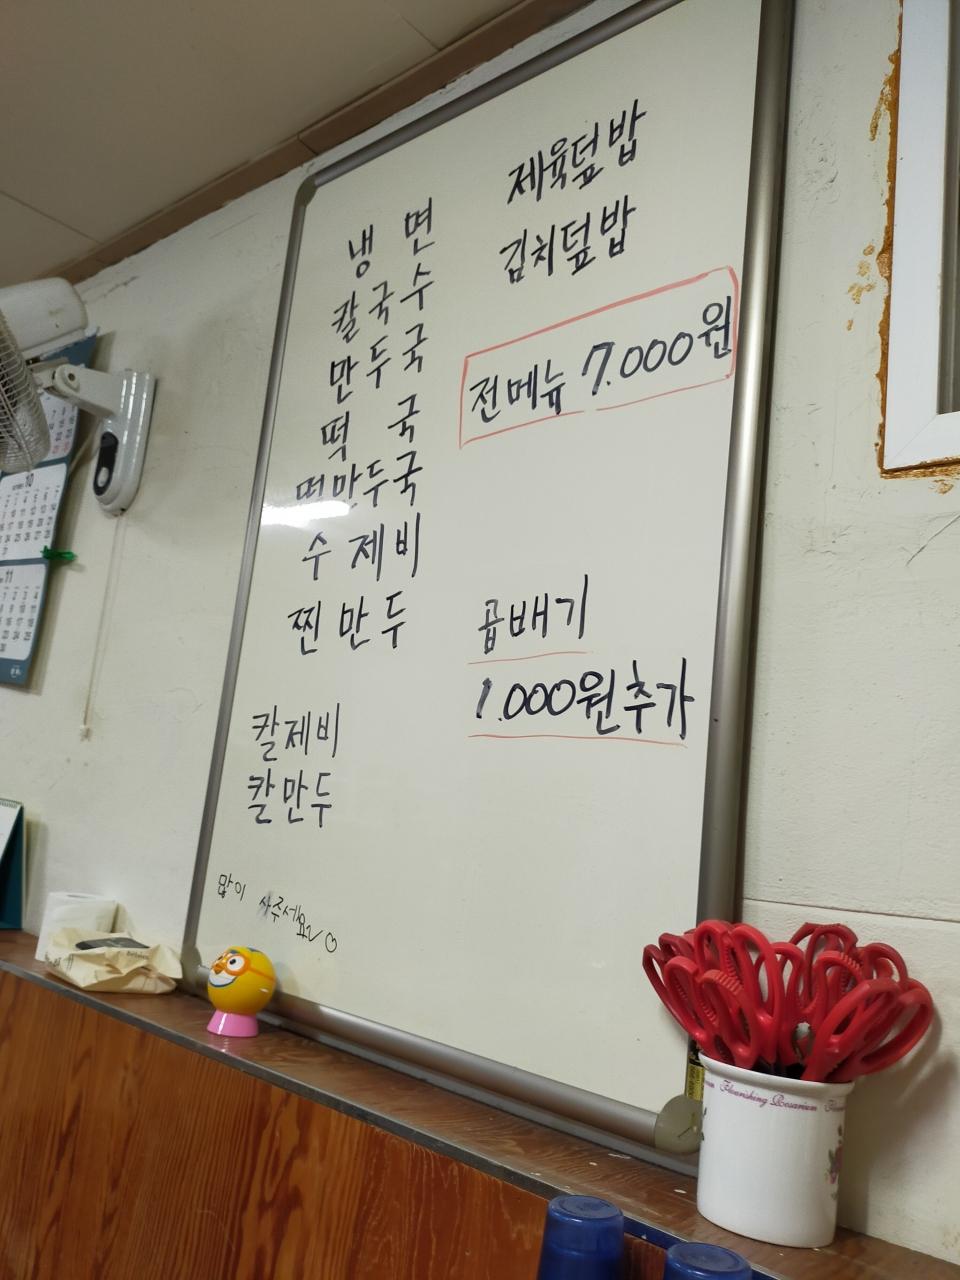 냉면
칼국수
만두국
떡국
떡만두국
수제비
찐만두
칼제비
칼만두
많이 사주세요~♡
제육덮밥
김치덮밥
전메뉴 7.000원
곱배기
1.000원추가
10
11
Flourishing Rosarium